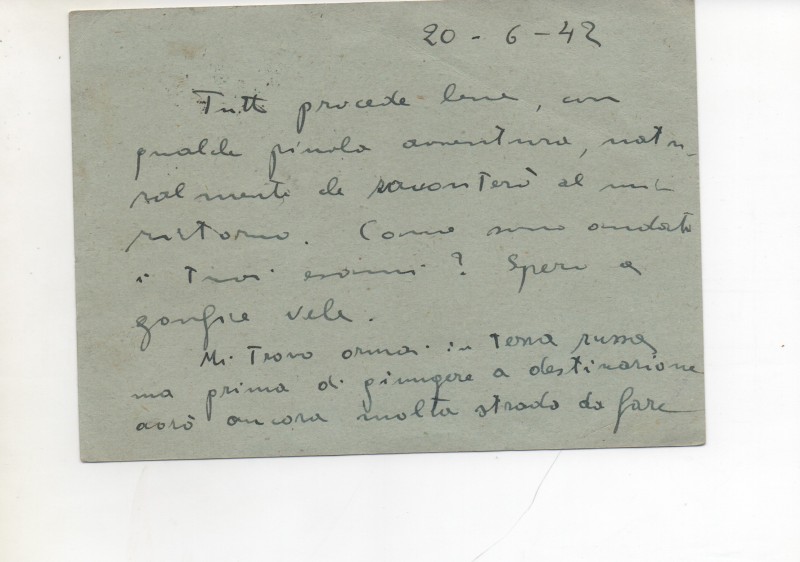 20 - 6 - 42
Tutto procede bene, con
qualche piccola avventura, natu-
ralmente che racconterò al mio
ritorno. Come sono andati
i tuoi esami? Spero a
gonfie vele.
Mi trovo ormai in terra russa
ma prima di giungere a destinazione
avrò ancora molta strada da fare